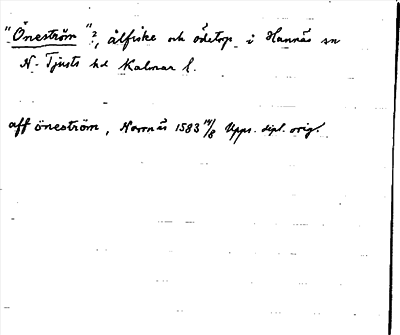 "Öneström"?, ålfiske och ödetorp i Hannäs sn
N. Tjusts hd Kalmar l.
aff öneström, Norrnäs 1583 14/8 Upps. dipl. orig.